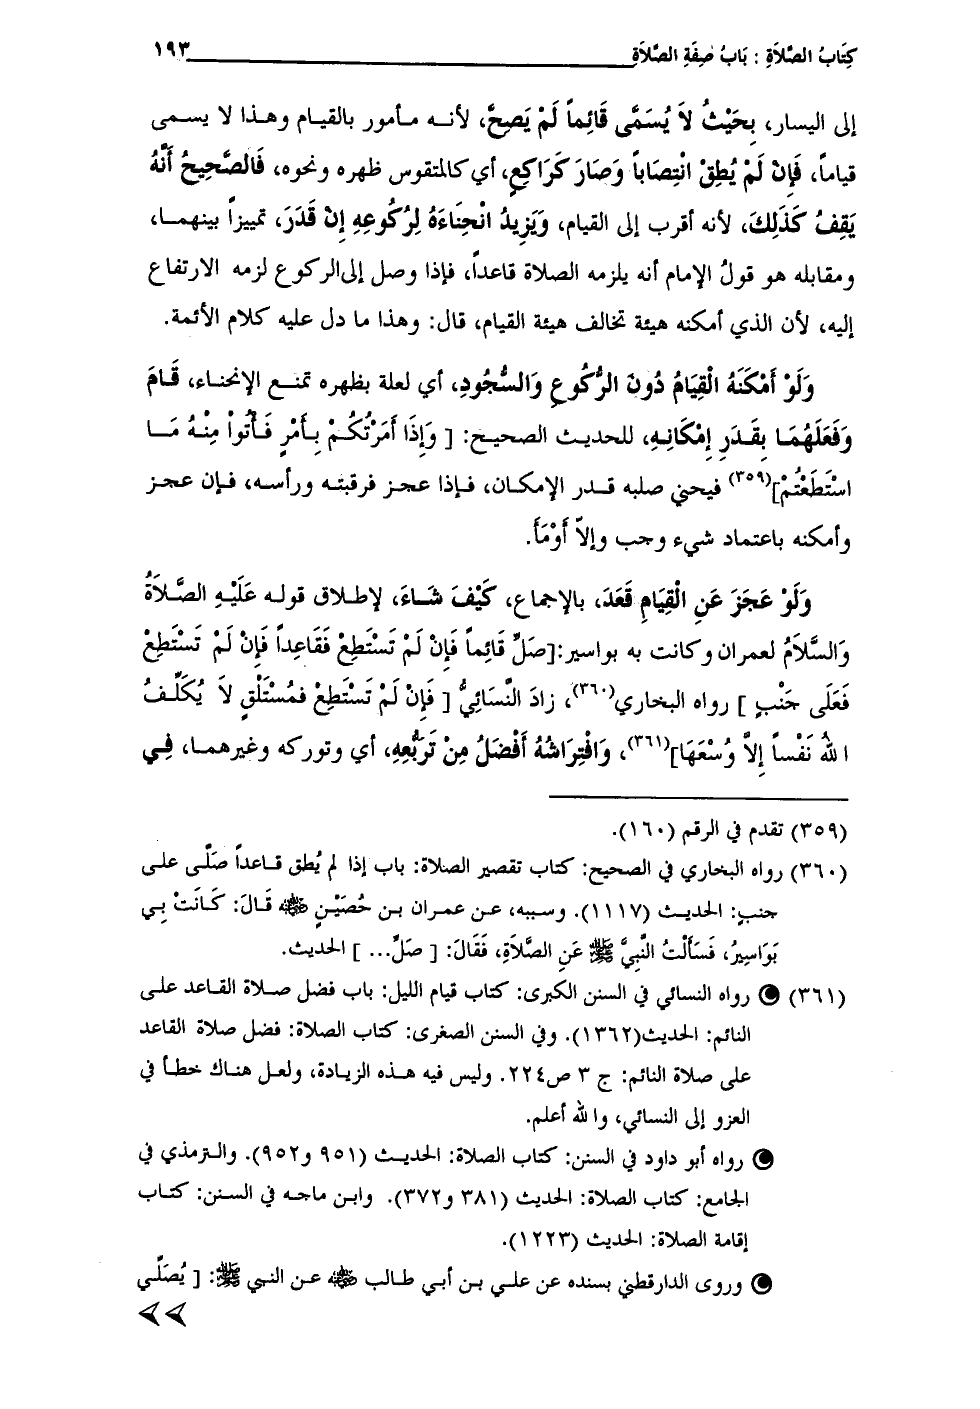 كِتَابُ الصَّلَاةِ : بَابُ صِفَةِ الصَّلَاةِ ١٩٣
إلى اليسار، بِحَيْثُ لاَ يُسَمَّى قَائِماً لَمْ يَصِحَّ، لأنه مأمور بالقيام وهذا لا يسمى
قياماً، فَإِنْ لَمْ يُطِقْ انْتِصَاباً وَصَارَ كَرَاكِعٍ، أي كالمتقوس ظهره ونحوه، فَالصَّحِيحُ أَنَّهُ
يَقِفُ كَذَلِكَ، لأنه أقرب إلى القيام، وَيَزِيدُ انْحِنَاءَهُ لِرُكُوعِهِ إِنْ قَدَرَ، تمييزاً بينهما،
ومقابله هو قولُ الإمام أنه يلزمه الصلاة قاعداً، فإذا وصل إلى الركوع لزمه الارتفاع
إليه، لأن الذي أمكنه هيئة تخالف هيئة القيام، قال: وهذا ما دل عليه كلام الأئمة.
وَلَوْ أَمْكَنَهُ الْقِيَامُ دُونَ الرُّكُوعِ وَالسُّجُودِ، أي لعلة بظهره تمنع الإنحناء، قَامَ
وَفَعَلَهُمَا بِقَدَرِ إِمْكَانِهِ، للحديث الصحيح: [ وَإِذَا أَمَرْتُكُمْ بِأَمْرٍ فَأْتُواْ مِنْهُ مَا
اسْتَطَعْتُمْ](٣٥٩) فيحني صلبه قدر الإمكان، فإذا عجز فرقبته ورأسه، فإن عجز
وأمكنه باعتماد شيء وجب وإلاّ أَوْمَأَ.
وَلَوْ عَجَزَ عَنِ الْقِيَامِ قَعَدَ، بالإجماع، كَيْفَ شَاءَ، لإطلاق قوله عَلَيْهِ الصَّلَاةُ
وَالسَّلَامُ لعمران وكانت به بواسير:[صَلِّ قَائِماً فَإِنْ لَمْ تَسْتَطِعْ فَقَاعِداً فَإِنْ لَمْ تَسْتَطِعْ
فَعَلَى جَنْبٍ ] رواه البخاري(٣٦٠)، زادَ النَّسَائِيُّ [ فَإِنْ لَمْ تَسْتَطِعْ فمُسْتَلْقٍ لاَ يُكَلِّفُ
اللهُ نَفْساً إِلاَّ وُسْعَهَا](٣٦١)، وَافْتِرَاشُهُ أَفْضَلُ مِنْ تَرَبُّعِهِ، أي وتوركه وغيرهما، فِي
(٣٥٩) تقدم في الرقم (١٦٠).
(٣٦٠) رواه البخاري في الصحيح: كتاب تقصير الصلاة: باب إذا لم يُطق قاعداً صَلَّى على
جنبٍ: الحديث (١١١٧). وسببه، عن عمران بن حُصَيْنٍ ﷺ قَالَ: كَانَتْ بِي
بَوَاسِيرُ، فَسَأَلْتُ النَّبِيَّ ﷺ عَنِ الصَّلَاةِ، فَقَالَ: [ صَلِّ... ] الحديث.
(٣٦١) رواه النسائي في السنن الكبرى: كتاب قيام الليل: باب فضل صلاة القاعد على
النائم: الحديث(١٣٦٢). وفي السنن الصغرى: كتاب الصلاة: فضل صلاة القاعد
على صلاة النائم: ج ٣ ص٢٢٤. وليس فيه هذه الزيادة، ولعل هناك خطأ في
العزو إلى النسائي، والله أعلم.
رواه أبو داود في السنن: كتاب الصلاة: الحديث (٩٥١ و٩٥٢). والترمذي في
الجامع: كتاب الصلاة: الحديث (٣٨١ و٣٧٢). وابن ماجه في السنن: كتاب
إقامة الصلاة: الحديث (١٢٢٣).
وروى الدارقطني بسنده عن علي بن أبي طالب ﷺ عن النبي ﷺ: [ يُصَلِّي